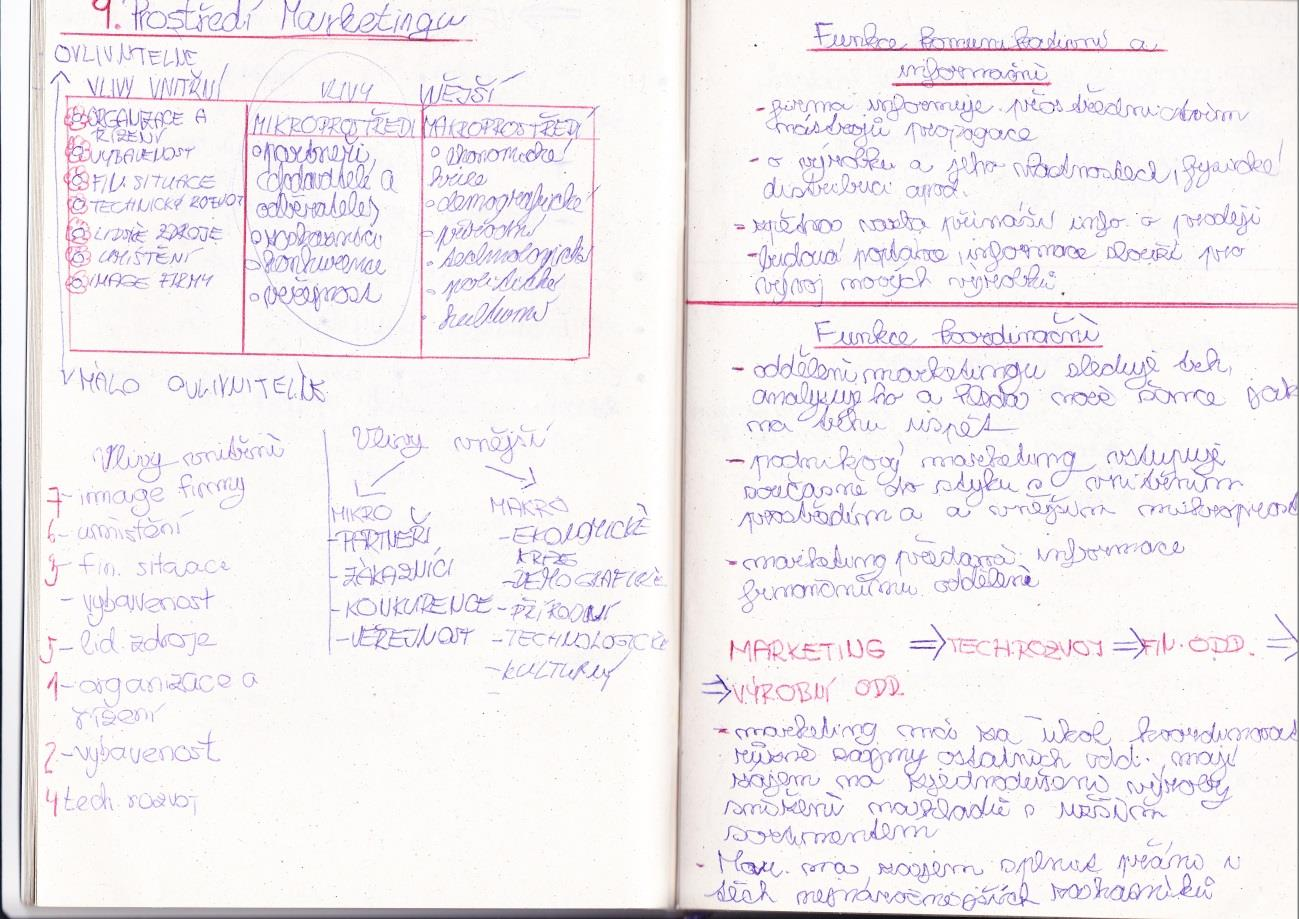 9. Prostředí Marketingu
OVLIVNITELNÉ
VLIVY VNITŘNÍ VLIVY VNĚJŠÍ
ORGANIZACE A
ŘÍZENÍ
VYBAVENOST
FIN. SITUACE
TECHNICKÝ ROZVOJ
LIDSKÉ ZDROJE
UMÍSTĚNÍ
IMAGE FIRMY
MIKROPROSTŘEDÍ
partneři,
(dodavatelé a
odběratelé)
zákazníci
konkurence
veřejnost
MAKROPROSTŘEDÍ
ekonomické
krize
demografické
přírodní
technologické
politické
kulturní
MÁLO OVLIVNITELNÉ
Vlivy vnitřní
7- image firmy
6- umístění
3- fin. situace
- vybavenost
5- lid. zdroje
1- organizace a
řízení
2- vybavenost
4 tech. rozvoj
Vlivy vnější
MIKRO
- PARTNEŘI
- ZÁKAZNÍCI
- KONKURENCE
- VEŘEJNOST
MAKRO
- EKOLOGICKÉ
KRIZE
- DEMOGRAFICKÉ
- PŘÍRODNÍ
- TECHNOLOGICKÉ
- KULTURNÍ
Funkce komunikativní a
informační
- firma informuje prostřednictvím
nástrojů propagace
- o výrobku a jeho vlastnostech, fyzické
distribuci apod.
- zpětná vazba přináší info. o prodeji
- budoucí poptávce, informace slouží pro
vývoj nových výrobků.
Funkce koordinační
- oddělení marketingu sleduje trh,
analyzuje ho a hledá nové šance jak
na trhu uspět
- podnikový marketing vstupuje
současně do styku s vnitřním
prostředím a a vnějším mikroprost
- marketing předává informace
finančnímu oddělení
MARKETING ⇒ TECH.ROZVOJ ⇒ FIN. ODD. ⇒
⇒ VÝROBNÍ ODD.
- marketing má za úkol koordinovat
různé zájmy ostatních odd. mají
zájem na zjednodušení výroby
snížení nákladů s užším
sortimentem
- Mar. má zájem splnit přání i
těch nejnáročnějších zákazníků